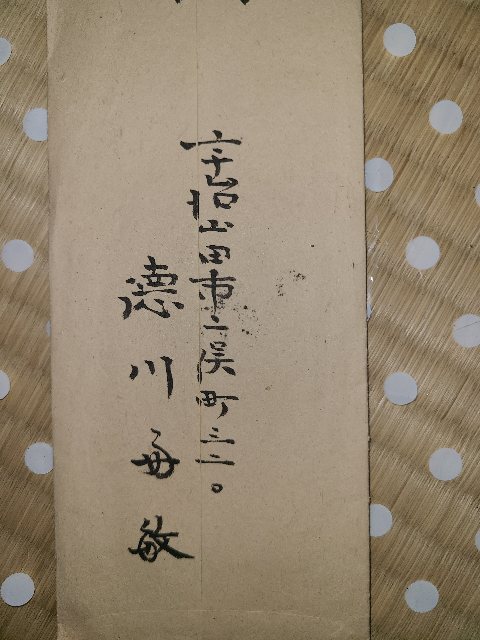 宇治山田市二俣町三二〇
徳川毎敏